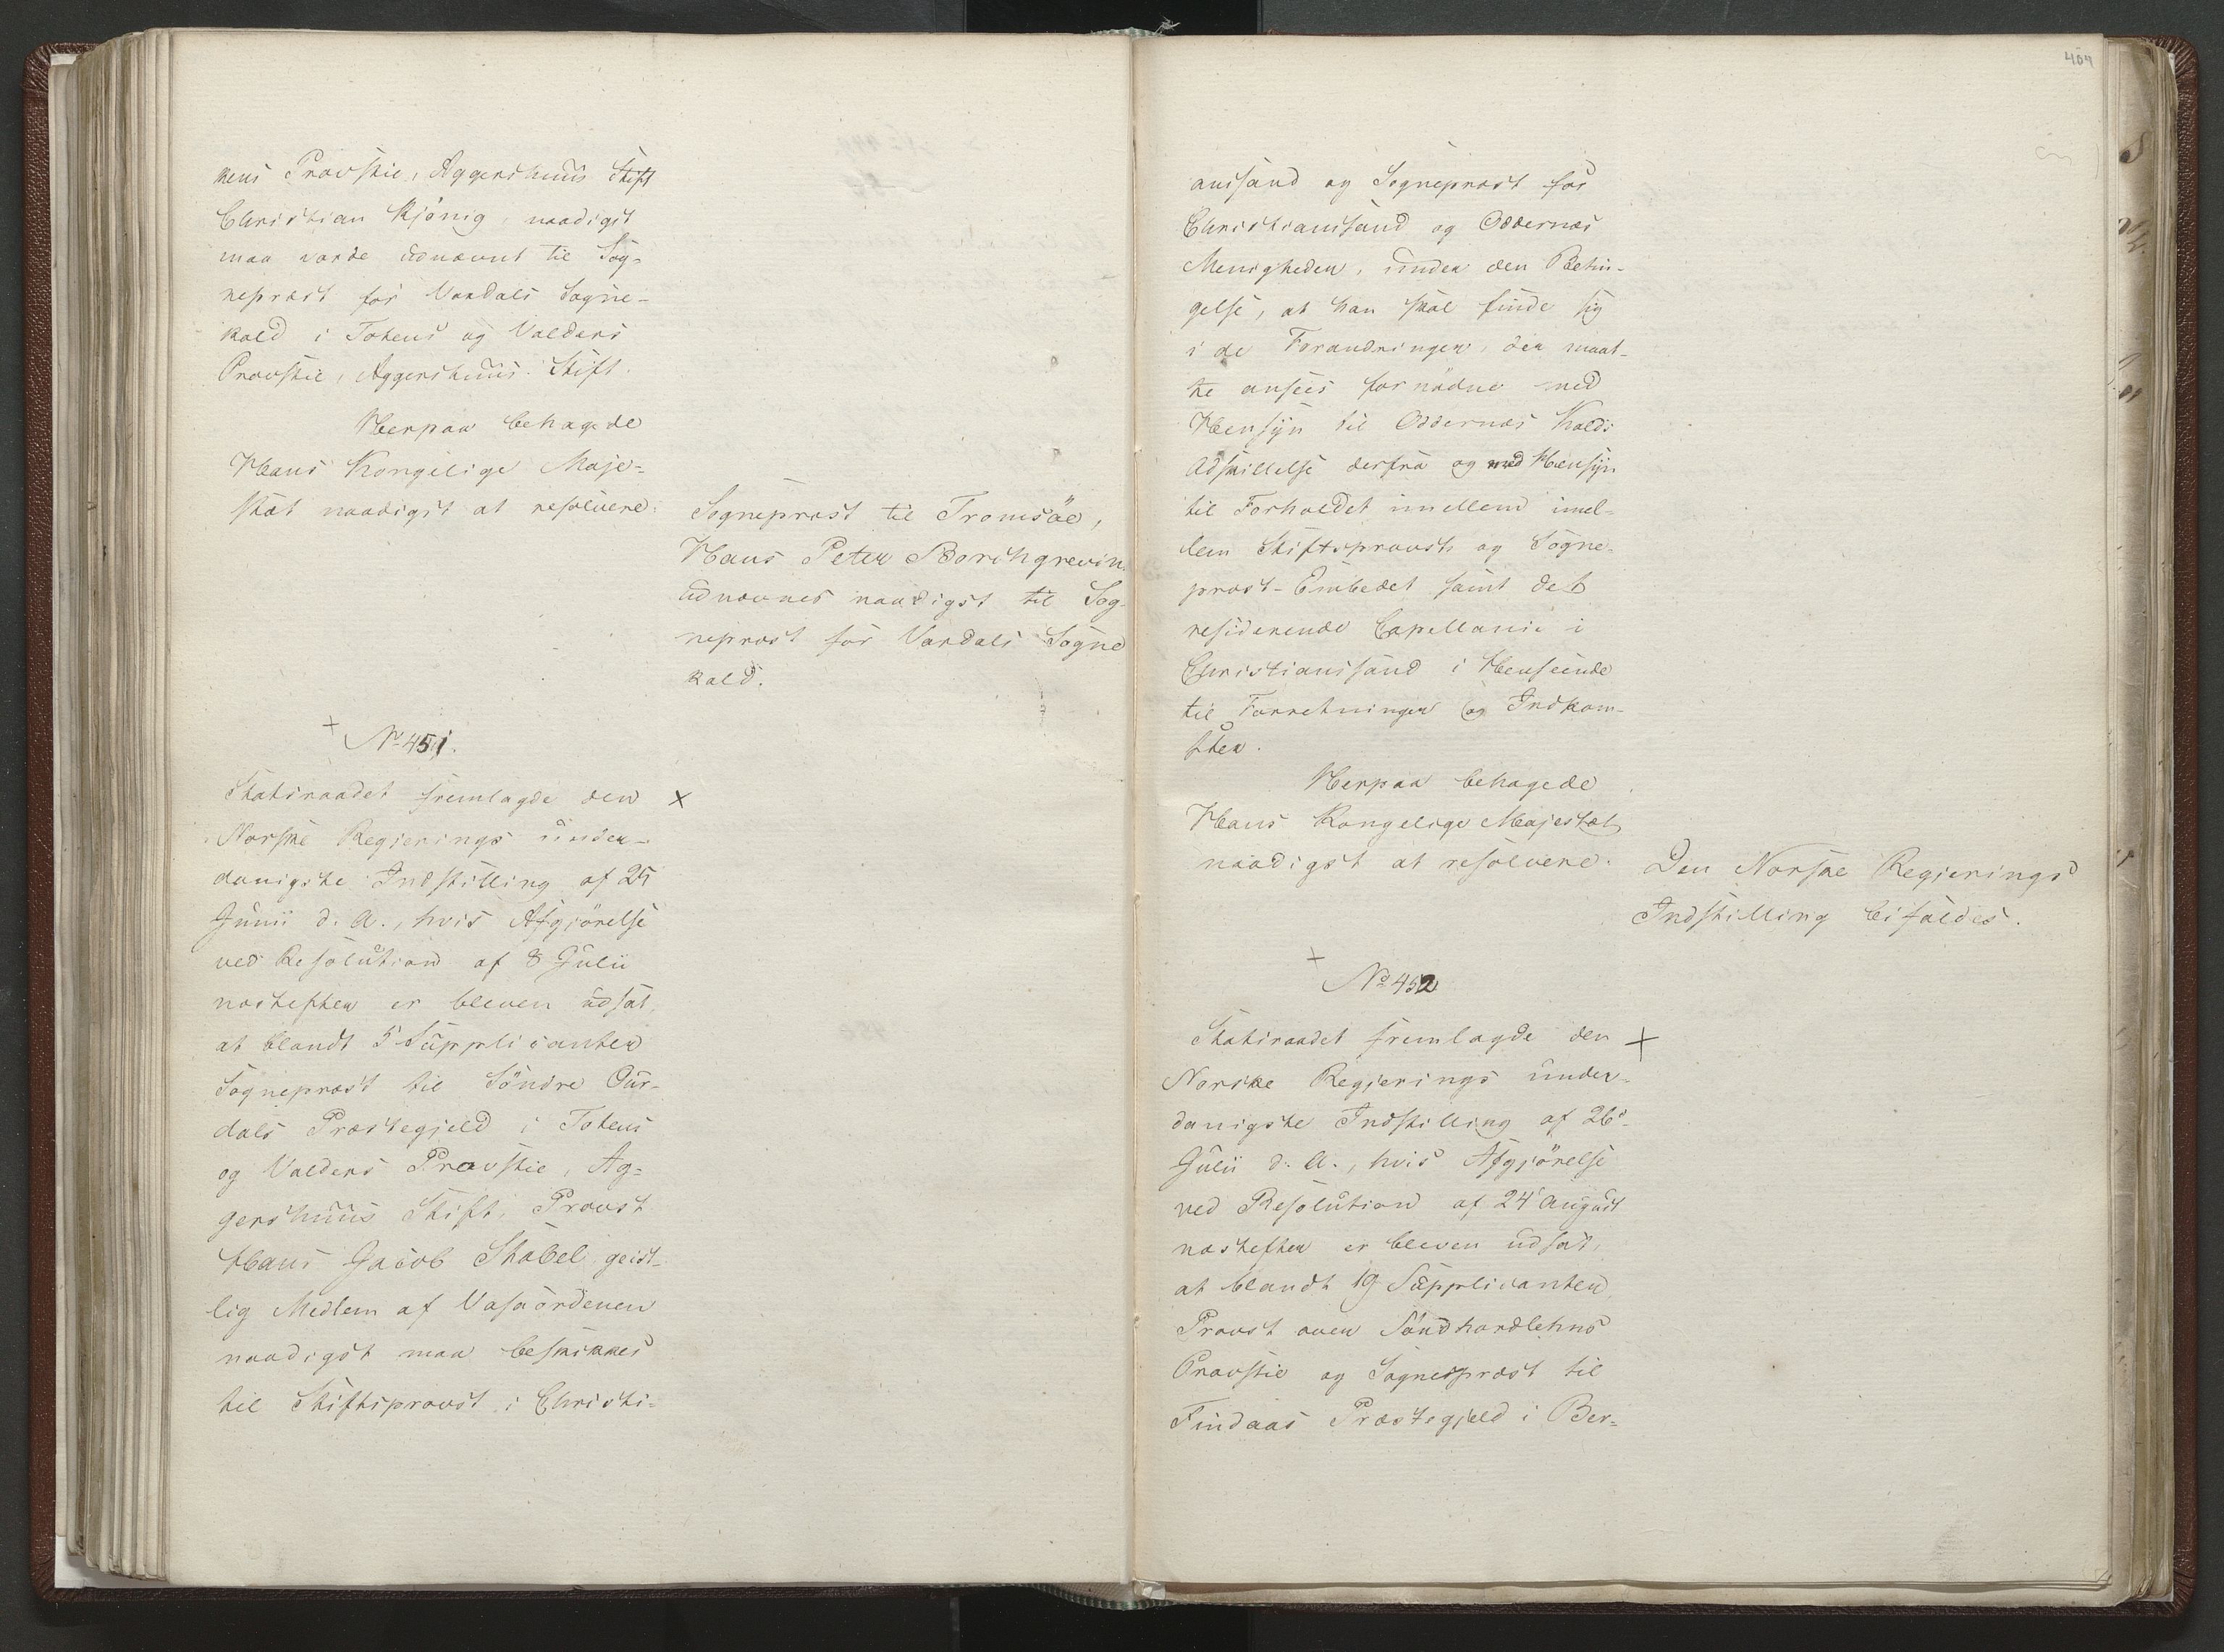 kens Provstie, Aggershuus Stift
Christian Kjönig, naadigst
maa vorde udnævnt til Sog-
nepræst for Vardals Sogne-
kald i Totens og Valders
Provstie, Aggershuus Stift.
Herpaa behagede
Hans Kongelige Maje-
stæt naadigst at resolvere:
Sognepræst til Tromsöe,
Hans Peter Borchgrevin
udnævnes naadigst til Sog-
nepræst for Vardals Sogne
kald.
+
No 451.
Statsraadet fremlagde den ×
Norske Regjerings under-
danigste Indstilling af 25
Junii d. A., hvis Afgjörelse
ved Resolution af 8 Julii
næstefter er bleven udsat,
at blandt 5 Supplicanter
Sognepræst til Söndre Our-
dals Præstegjeld i Totens
og Valders Provstie, Ag-
gershuus Stift, Provst
Hans Jacob Stabel geist-
lig Medlem af Vasaordenen
naadigst maa beskikkes
til Stiftsprovst i Christi-
404
anssand og Sognepræst for
Christianssand og Oddernæs
Menigheder, under den Betin-
gelse, at han skal finde sig
i de Forandringer, der maat-
te ansees fornödne med
Hensyn til Oddernæs Kalds
Adskillelse derfra og med Hensyn
til Forholdet imellem imel-
lem Stiftsprovsts og Sogne-
præst-Embedet samt det
residerende Capellanie i
Christianssand i Henseende
til Forretninger og Indkom-
ster.
Herpaa behagede
Hans Kongelige Majestæt
naadigst at resolvere:
Den Norske Regjerings
Indstilling bifaldes.
+
No 452
Statsraadet fremlagde den +
Norske Regjerings under-
danigste Indstilling af 26
Julii d. A., hvis Afgjörelse
ved Resolution af 24 August
næstefter er bleven udsat,
at blandt 19 Supplicanter
Provst over Söndhordlehns
Provstie og Sognepræst til
Findaas Præstegjeld i Ber-